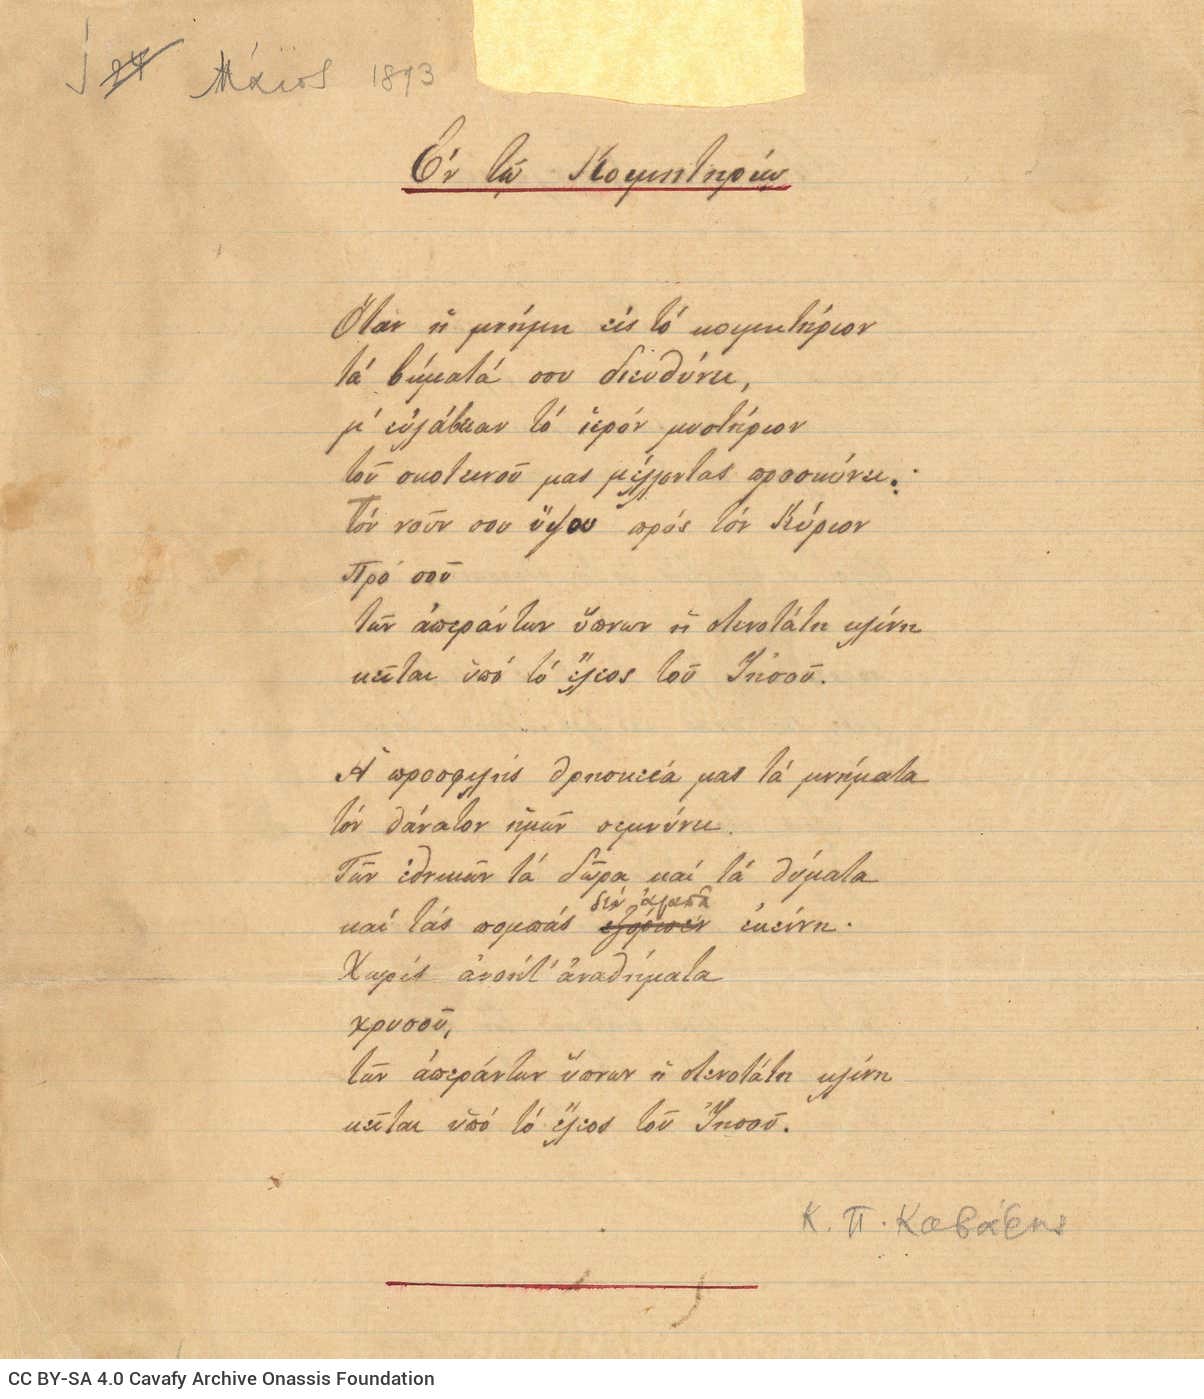 Μάϊος 1893
Ἐν τῷ Κοιμητηρίῳ
Ὅταν ἡ μνήμη εἰς τό κοιμητήριον
τά βήματά σου διευθύνει,
μ' εὐλάβειαν τό ἱερόν μυστήριον
τοῦ σκοτεινοῦ μας μέλλοντος προσκύνει.
Τόν νοῦν σου ὕψου πρός τόν Κύριον
Πρό σοῦ
τῶν ἀπεράντων ὕπνων ἡ στενοτάτη κλίνη
κεῖται ὑπό τό ἔλεος τοῦ Ἰησοῦ.
Ἡ προσφιλής θρησκεία μας τά μνήματα
τόν θάνατον ἡμῶν σεμνύνει.
Τῶν ἐθνικῶν τά δῶρα καί τά θύματα
δέν ἀγαπᾷ
καί τάς πομπάς ἐκείνη·
Χωρίς ἀνόητ' ἀναθήματα
χρυσοῦ,
τῶν ἀπεράντων ὕπνων ἡ στενοτάτη κλίνη
κεῖται ὑπό τό ἔλεος τοῦ Ἰησοῦ.
Κ. Π. Καβάφης
CC BY-SA 4.0 Cavafy Archive Onassis Foundation